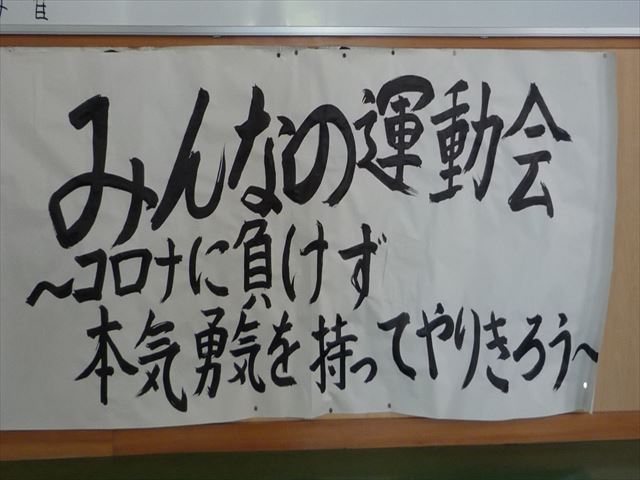 みんなの運動会
~コロナに負けず
本気勇気を持ってやりきろう~